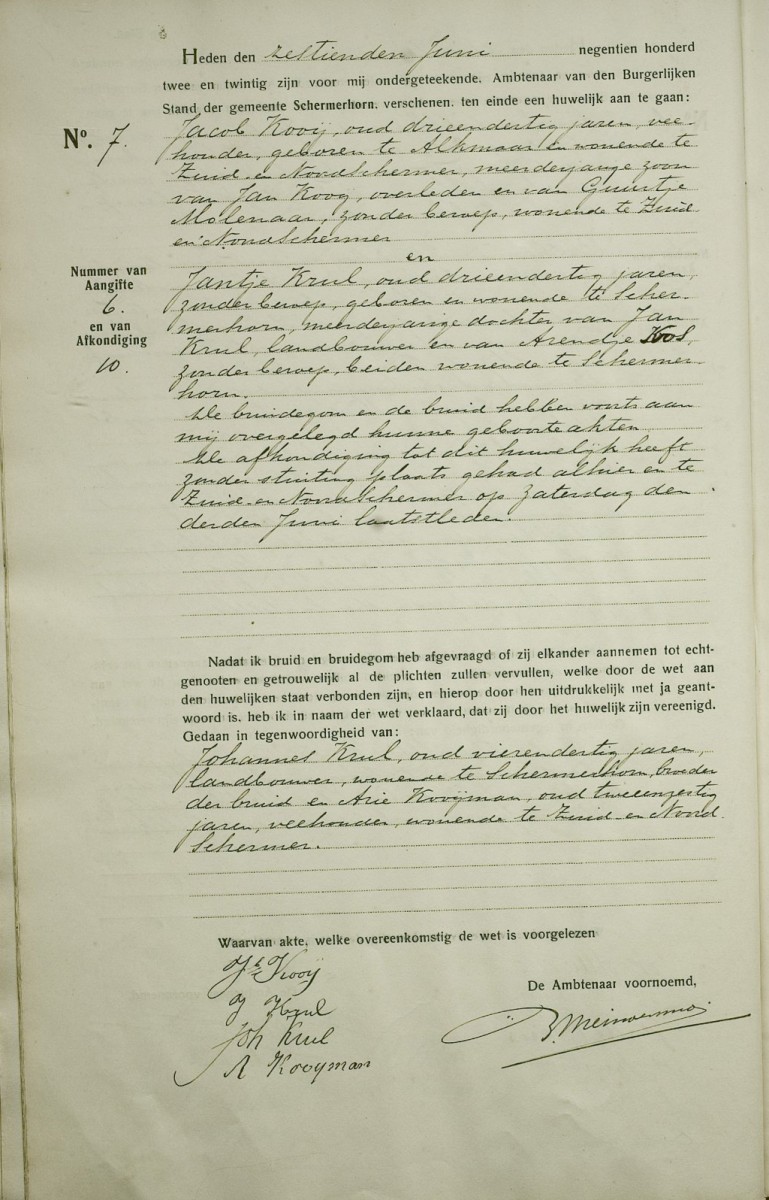 Heden den zestienden Juni negentien honderd
twee en twintig zijn voor mij ondergeteekende. Ambtenaar van den Burgerlijken
Stand der gemeente Schermerhorn, verschenen, ten einde een huwelijk aan te gaan:
No. 7.
Jacob Kooij, oud drieendertig jaren, vee-
houder, geboren te Alkmaar en wonende te
Zuid- en Noordschermer, meerderjarige zoon
van Jan Kooij, overleden en van Guurtje
Molenaar, zonder beroep, wonende te Zuid-
en Noordschermer
en
Nummer van
Aangifte
6.
en van
Afkondiging
10.
Jantje Krul, oud drieendertig jaren,
zonder beroep, geboren en wonende te Scher-
merhorn, meerderjarige dochter van Jan
Krul, landbouwer en van Arendje Kos,
zonder beroep, beiden wonende te Schermer-
horn.
De bruidegom en de bruid hebben voorts aan
mij overgelegd hunne geboorteakten
De afkondiging tot dit huwelijk heeft
zonder stuiting plaats gehad alhier en te
Zuid- en Noordschermer op zaterdag den
derden Juni laatstleden.
Nadat ik bruid en bruidegom heb afgevraagd of zij elkander aannemen tot echt-
genooten en getrouwelijk al de plichten zullen vervullen, welke door de wet aan
den huwelijken staat verbonden zijn, en hierop door hen uitdrukkelijk met ja geant-
woord is. heb ik in naam der wet verklaard, dat zij door het huwelijk zijn vereenigd.
Gedaan in tegenwoordigheid van:
Johannes Krul, oud vierendertig jaren,
landbouwer, wonende te Schermerhorn, broeder
der bruid en Arie Kooijman, oud tweeenzestig
jaren, veehouder, wonende te Zuid- en Noord-
Schermer.
Waarvan akte, welke overeenkomstig de wet is voorgelezen
De Ambtenaar voornoemd,
Jb Kooij
J Krul
Joh Krul
A Kooyman